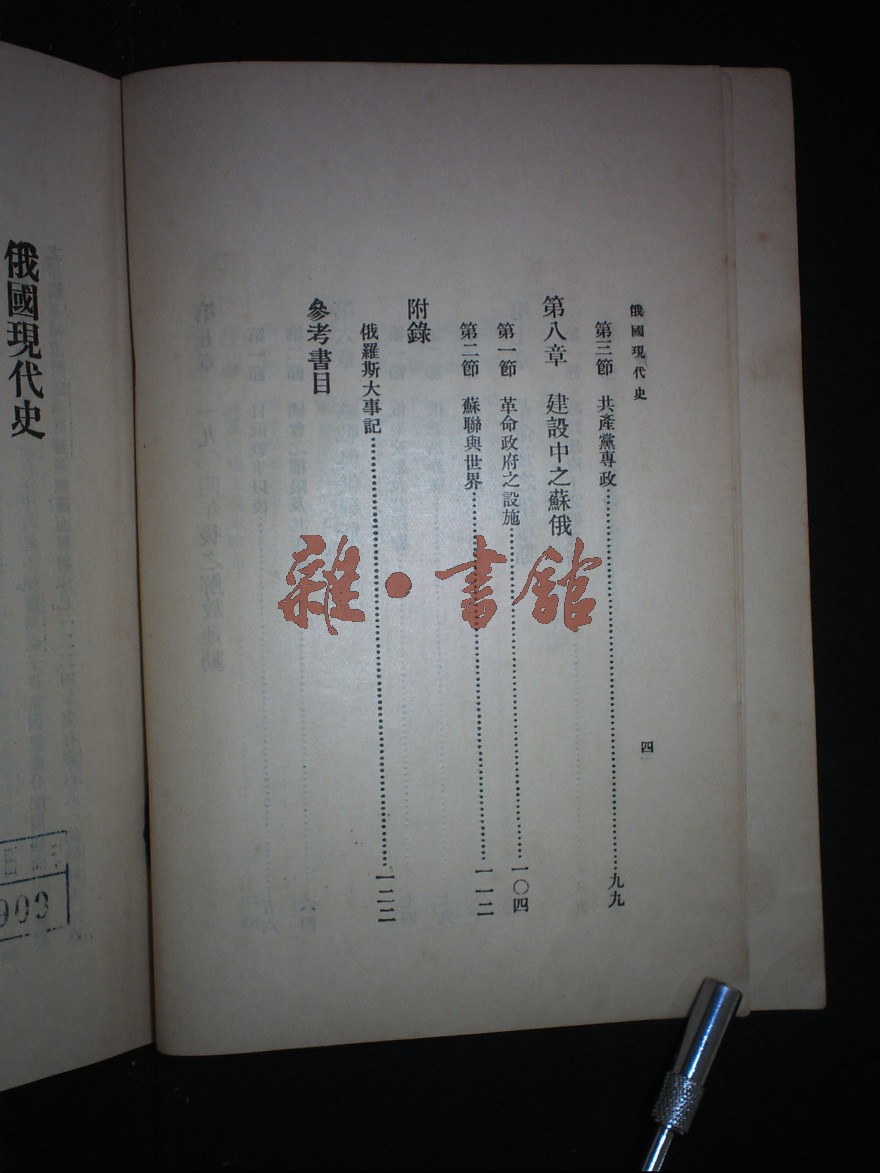 俄國現代史
四
第三節 共產黨專政……九九
第八章 建設中之蘇俄
第一節 革命政府之設施……一〇四
第二節 蘇聯與世界……一一二
附錄
俄羅斯大事記……一二二
參考書目
雜·書館
俄國現代史
909